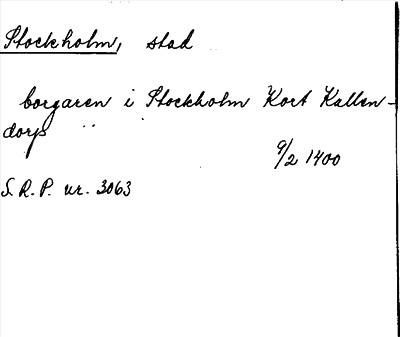 Stockholm, stad
borgaren i Stockholm Kort Kallen-
dorp
9/2 1400
S.R.P. nr. 3063